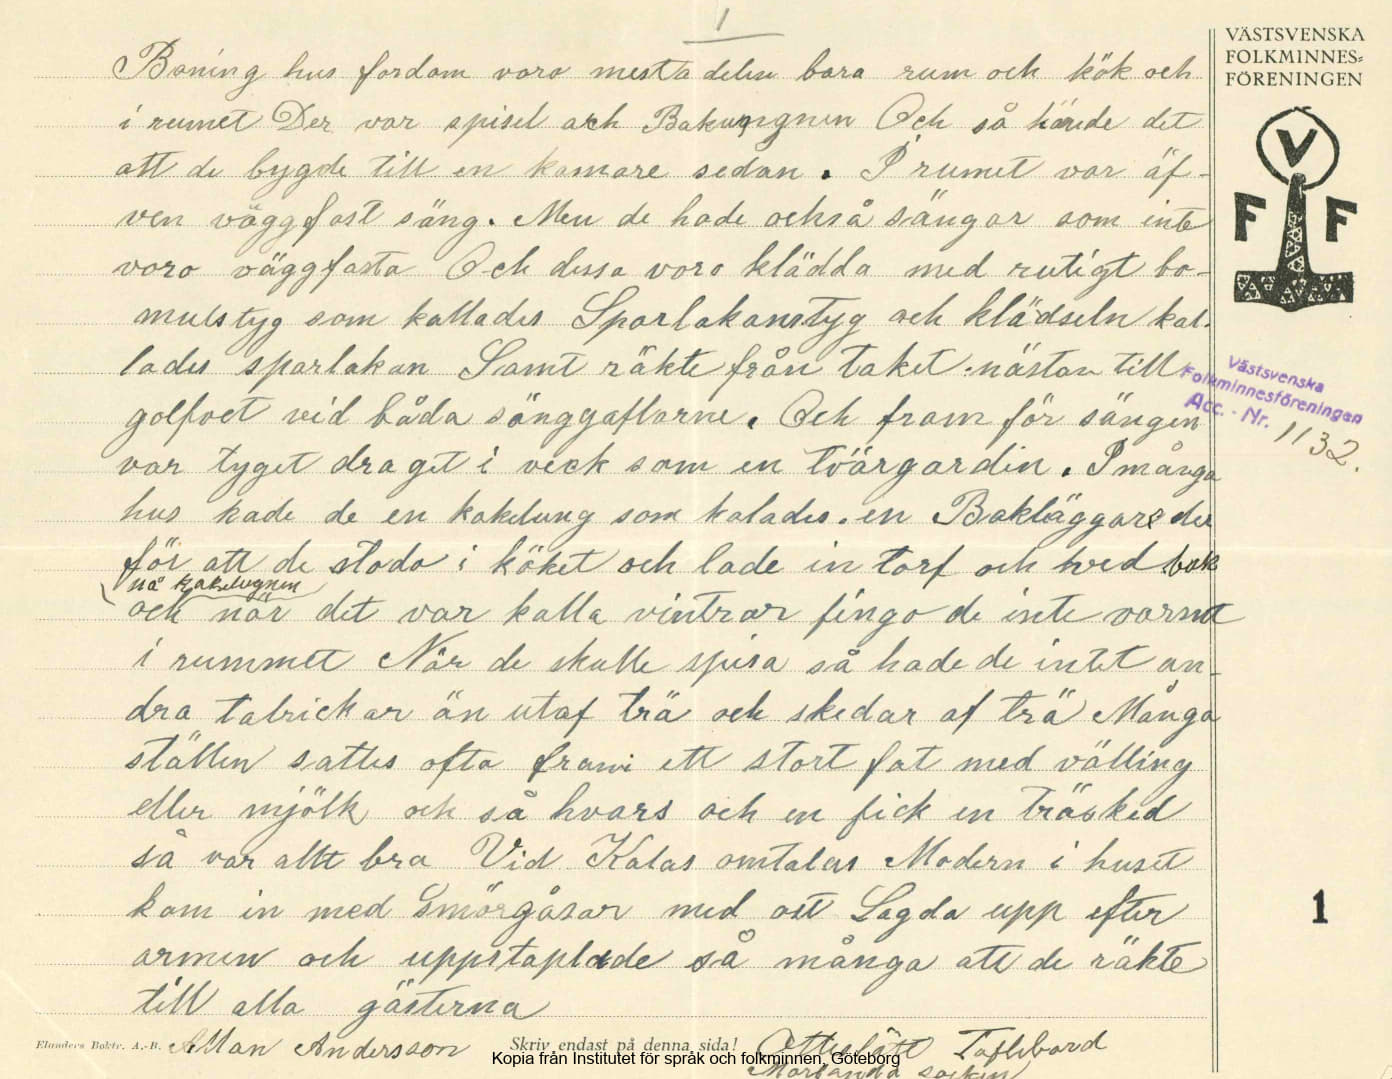 1
VÄSTSVENSKA
FOLKMINNES=
FÖRENINGEN
V
F F
Boning hus fordom voro mesta delen bara rum och kök och
i rumet Der var spisel och Bakungnen Och så hände det
att de bygde till en kamare sedan. I rumet var äf-
ven väggfast säng. Men de hade också sängar som inte
voro väggfasta Och dessa voro klädda med rutigt bo-
mulstyg som kallades Sparlakanstyg och klädseln kal-
lades sparlakan Samt räkte från taket nästan till
golfvet vid båda sänggaflarne. Och fram för sängen
var tyget draget i veck som en tvärgardin. I många
hus hade de en kakelung som kalades. en Bakläggare der
för att de stodo i köket och lade in torf och hved bak
nå kakelugnen
och när det var kalla vintrar fingo de inte varmt
i rummet När de skulle spisa så hade de intet an-
dra talrickar än utaf trä och skedar af trä Många
ställen sattes ofta fram ett stort fat med välling
eller mjölk och så hvars och en fick en träsked
så var allt bra Vid Kalas omtalas Modern i huset
kom in med Smörgåsar med ost Lagda upp efter
armen och uppstaplade så många att de räkte
till alla gästerna
Västsvenska
Folkminnesföreningen
Acc. - Nr. 1132.
1
Elanders Boktr. A.-B.
Allan Andersson
Skriv endast på denna sida!
Taflebord
Morlanda socken
Kopia från Institutet för språk och folkminnen, Göteborg